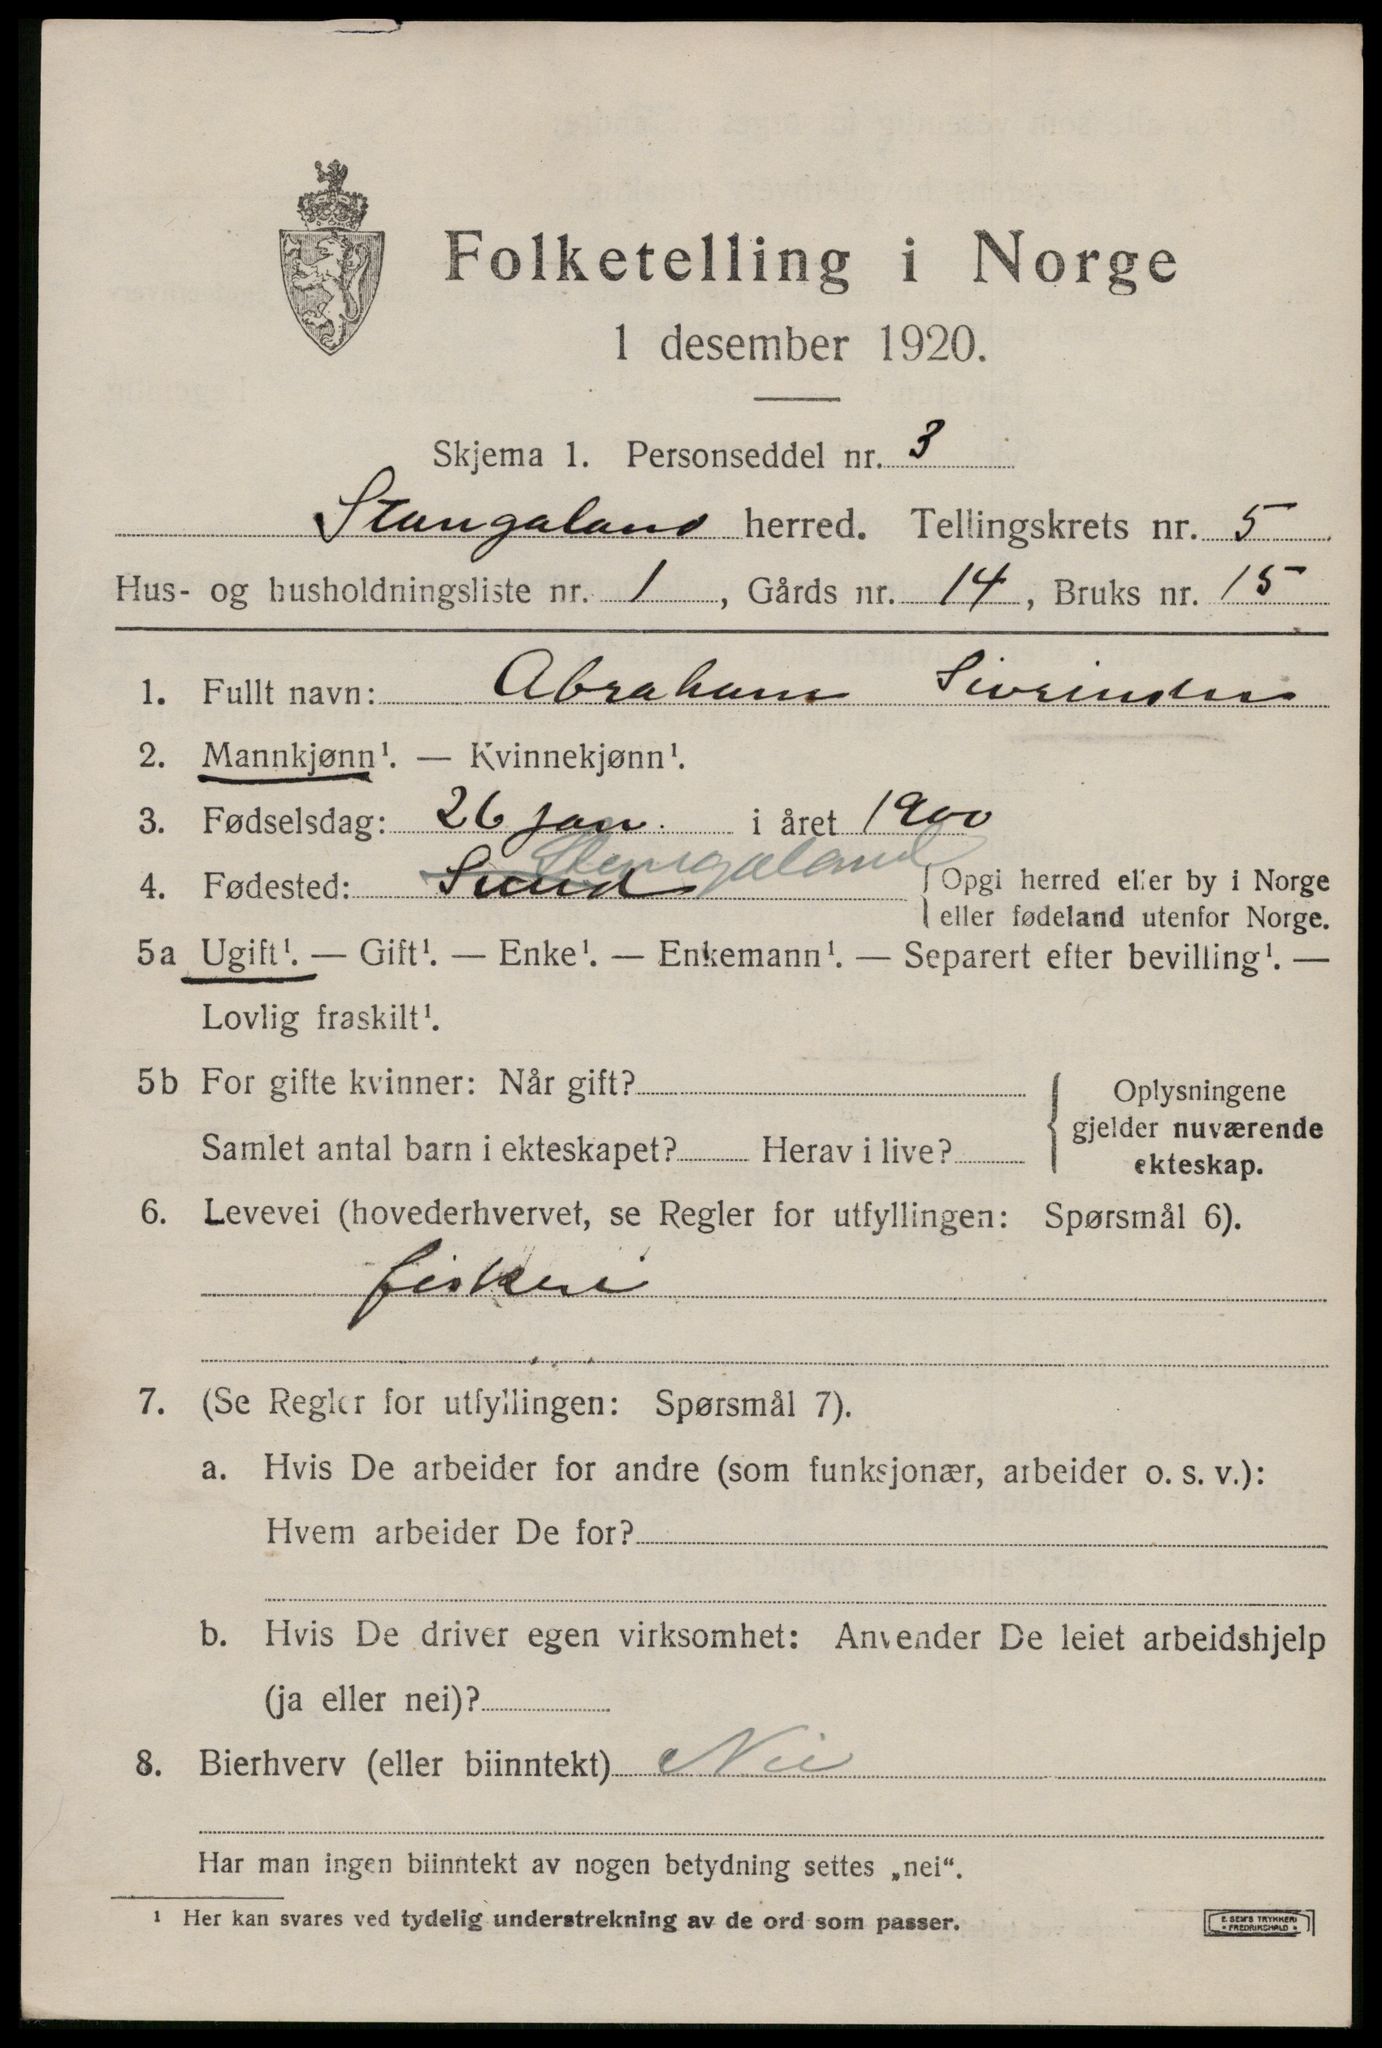 Folketelling i Norge
1 desember 1920.
Skjema 1. Personseddel nr. 3
Stangaland herred. Tellingskrets nr. 5
Hus- og husholdningsliste nr. 1, Gårds nr. 14, Bruks nr. 15
1. Fullt navn: Abraham Sivrindsen
2. Mannkjønn¹. — Kvinnekjønn¹.
3. Fødselsdag: 26 jan. i året 1900
Stangaland
4. Fødested: Sund { Opgi herred eller by i Norge
eller fødeland utenfor Norge.
5a Ugift¹. — Gift¹. — Enke¹. — Enkemann¹. — Separert efter bevilling¹. —
Lovlig fraskilt¹.
5b For gifte kvinner: Når gift? { Oplysningene
gjelder nuværende
ekteskap.
Samlet antal barn i ekteskapet? Herav i live?
6. Levevei (hovederhvervet, se Regler for utfyllingen: Spørsmål 6).
fiskeri
7. (Se Regler for utfyllingen: Spørsmål 7).
a. Hvis De arbeider for andre (som funksjonær, arbeider o. s. v.):
Hvem arbeider De for?
b. Hvis De driver egen virksomhet: Anvender De leiet arbeidshjelp
(ja eller nei)?
8. Bierhverv (eller biinntekt) Nei
Har man ingen biinntekt av nogen betydning settes „nei“.
¹ Her kan svares ved tydelig understrekning av de ord som passer.
E. SEM'S TRYKKERI
• FREDRIKSHALD •